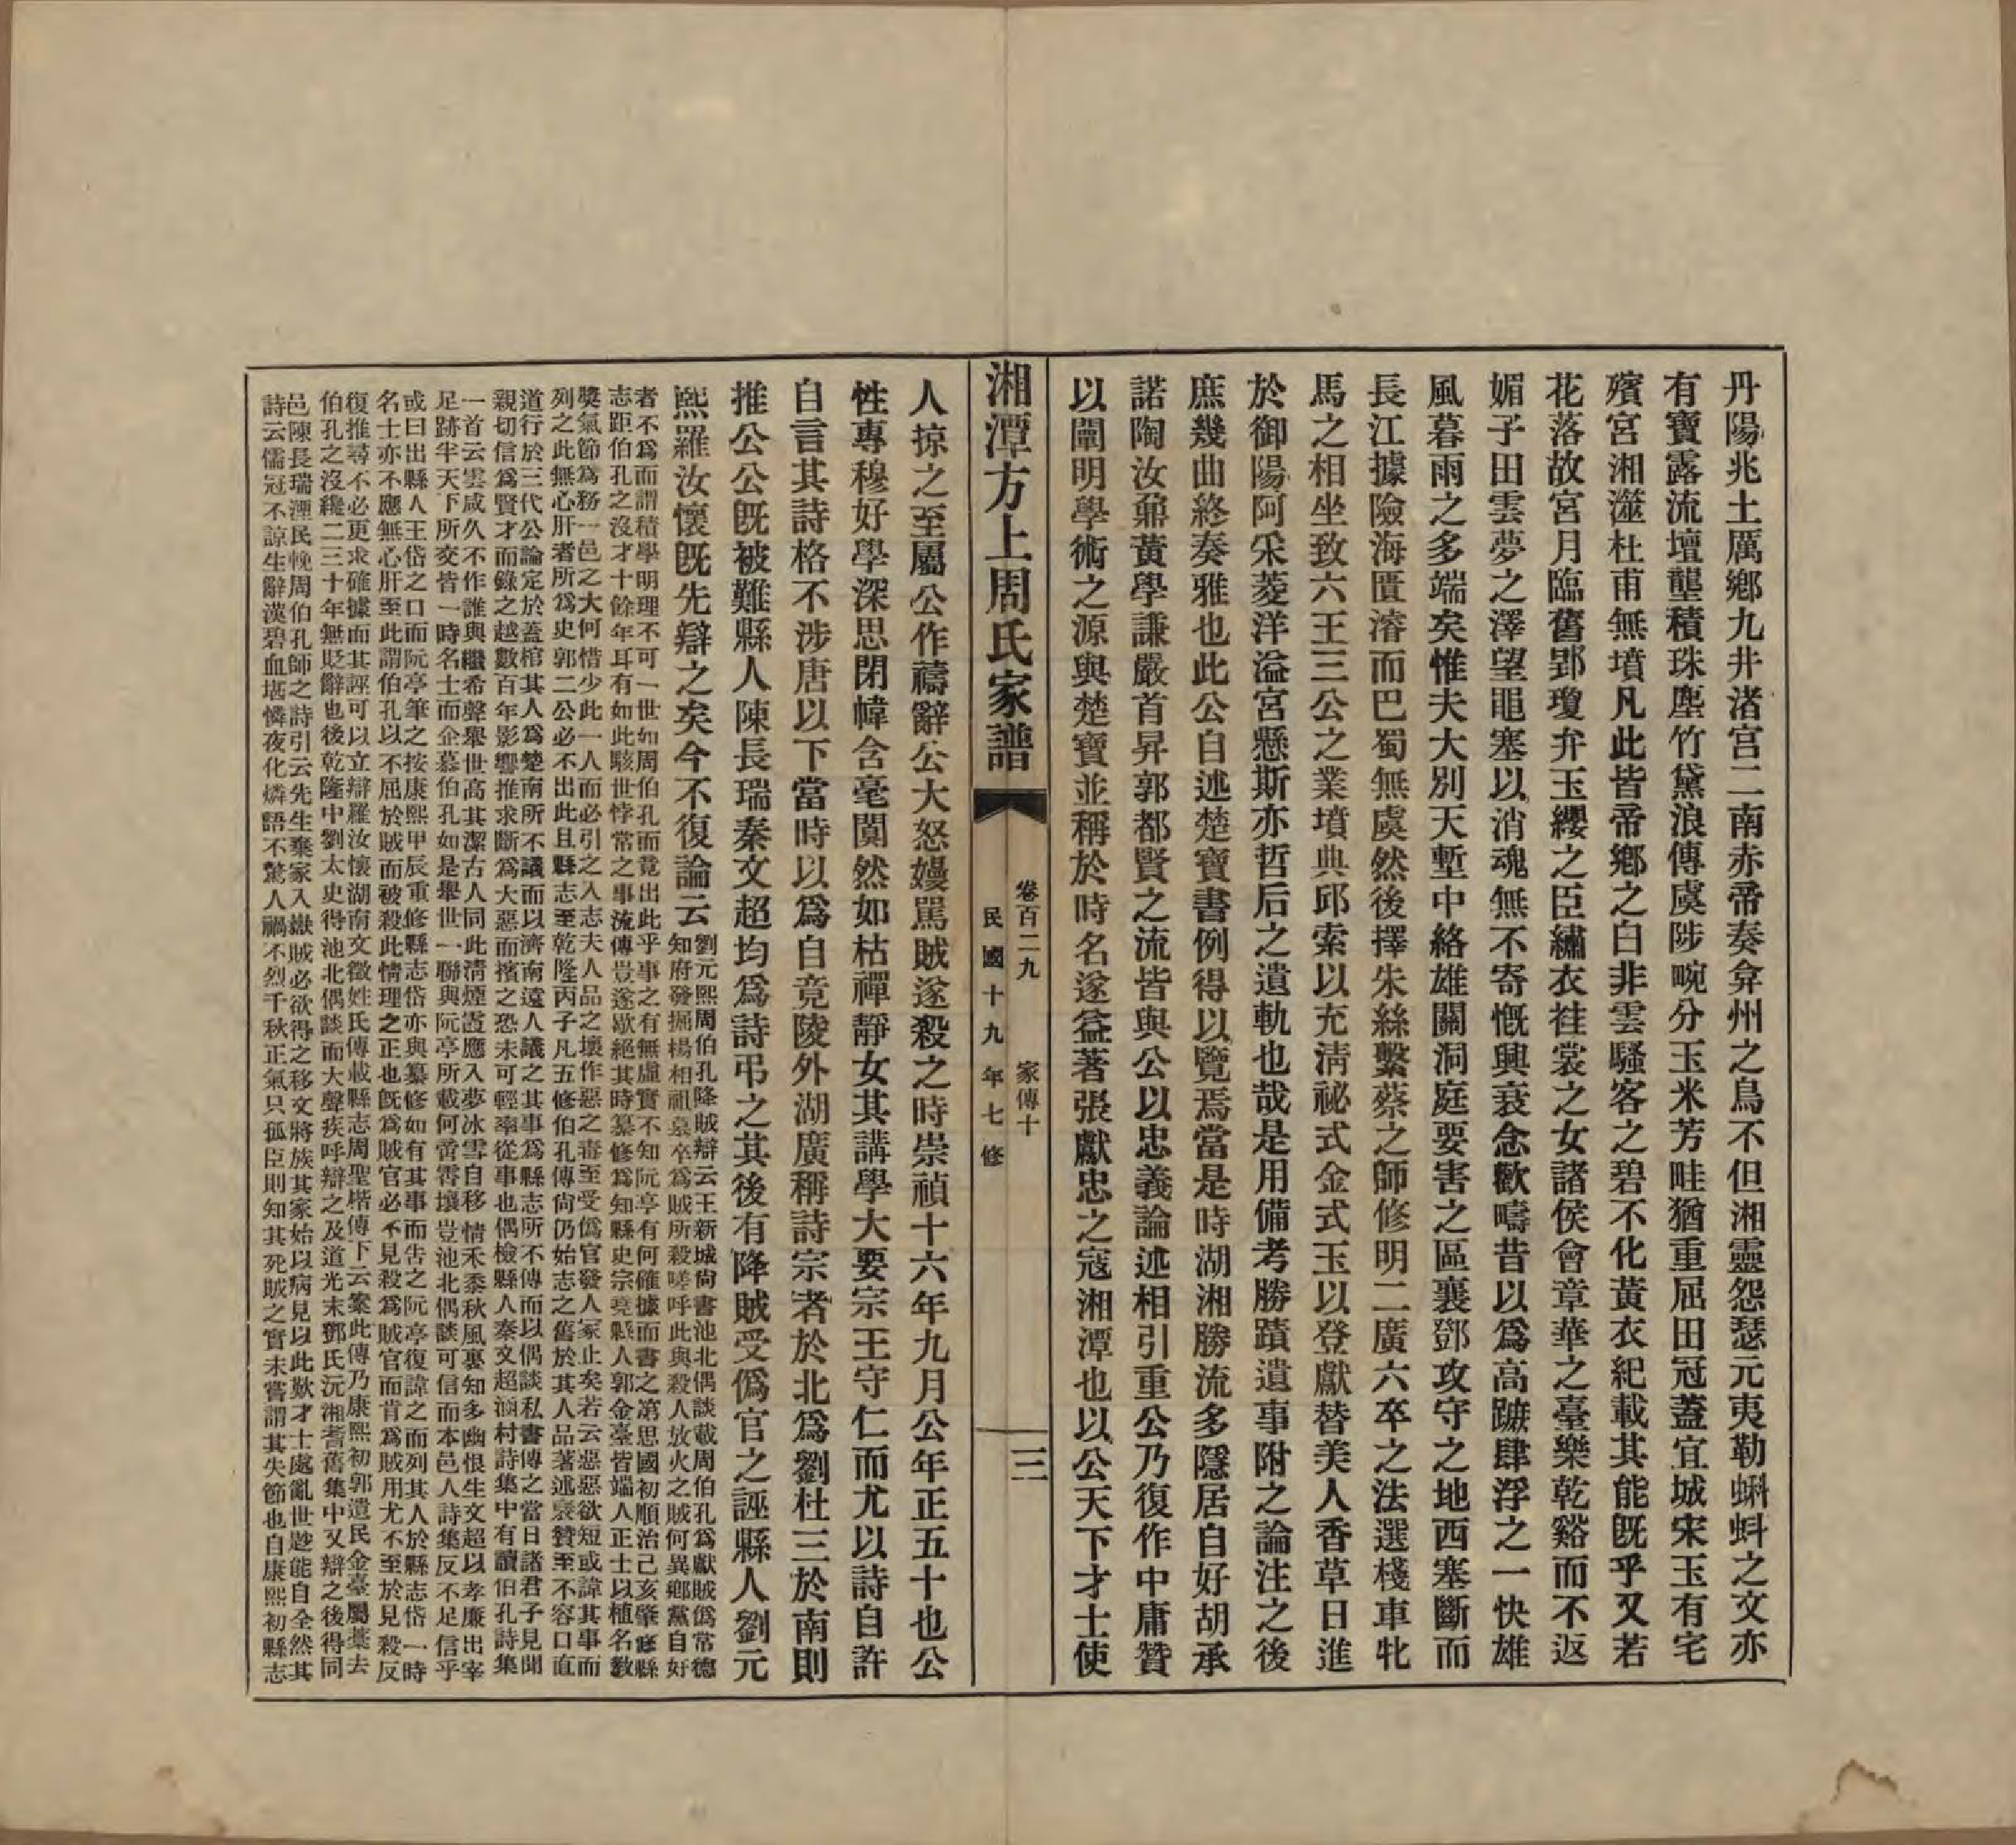 丹陽兆土厲鄉九井渚宮二南赤帝奏弇州之鳥不但湘靈怨瑟元夷勒蝌蚪之文亦
有寶露流壇壟積珠塵竹黛浪傳虞陟畹分玉米芳畦猶重屈田冠蓋宜城宋玉有宅
殯宮湘灉杜甫無墳凡此皆帝鄉之白非雲騷客之碧不化黃衣紀載其能旣乎又若
花落故宮月臨舊郢瓊弁玉纓之臣繡衣袿裳之女諸侯會章華之臺樂乾谿而不返
媚子田雲夢之澤望黽塞以消魂無不寄慨興衰念歡疇昔以爲高蹠肆浮之一快雄
風暮雨之多端矣惟夫大別天塹中絡雄關洞庭要害之區襄鄧攻守之地西塞斷而
長江據險海匱濬而巴蜀無虞然後擇朱絲繫蔡之師修明二廣六卒之法選棧車牝
馬之相坐致六王三公之業墳典邱索以充淸祕式金式玉以登獻替美人香草日進
於御陽阿采菱洋溢宮懸斯亦哲后之遺軌也哉是用備考勝蹟遺事附之論注之後
庶幾曲終奏雅也此公自述楚寶書例得以覽焉當是時湖湘勝流多隱居自好胡承
諾陶汝鼐黃學謙嚴首昇郭都賢之流皆與公以忠義論述相引重公乃復作中庸贊
以闡明學術之源與楚寶並稱於時名遂益著張獻忠之寇湘潭也以公天下才士使
湘潭方上周氏家譜
卷百二九 家傳十
三
民國十九年七修
人掠之至屬公作禱辭公大怒嫚罵賊遂殺之時崇禎十六年九月公年正五十也公
性專穆好學深思閉幃含毫闃然如枯禪靜女其講學大要宗王守仁而尤以詩自許
自言其詩格不涉唐以下當時以爲自竟陵外湖廣稱詩宗者於北爲劉杜三於南則
推公公旣被難縣人陳長瑞秦文超均爲詩弔之其後有降賊受僞官之誣縣人劉元
熙羅汝懷旣先辯之矣今不復論云
劉元熙周伯孔降賊辯云王新城尙書池北偶談載周伯孔爲獻賊僞常德
知府發掘楊相祖墓卒爲賊所殺嗟呼此與殺人放火之賊何異鄉黨自好
者不爲而謂積學明理不可一世如周伯孔而竟出此乎事之有無虛實不知阮亭有何確據而書之第思國初順治己亥肇修縣
志距伯孔之沒才十餘年耳有如此駭世悖常之事流傳豈遂歇絕其時纂修爲知縣史宗堯縣人郭金臺皆端人正士以植名敎
獎氣節爲務一邑之大何惜少此一人而必引之入志夫人品之壞作惡之毒至受僞官發人冢止矣若云惡惡欲短或諱其事而
列之此無心肝者所爲史郭二公必不出此且縣志至乾隆丙子凡五修伯孔傳尙仍始志之舊於其人品著述褒贊至不容口直
道行於三代公論定於蓋棺其人爲楚南所不議而以濟南遠人議之其事爲縣志所不傳而以偶談私書傳之當日諸君子見聞
親切信爲賢才而錄之越數百年影響推求斷爲大惡而擯之恐未可輕率從事也偶檢縣人秦文超涵村詩集中有讀伯孔詩集
一首云雲咸久不作誰與繼希聲舉世高其潔古人同此淸煙霞應入夢冰雪自移情禾黍秋風裏知多幽恨生文超以孝廉出宰
足跡半天下所交皆一時名士而企慕伯孔如是舉世一聯與阮亭所載何啻霄壤豈池北偶談可信而本邑人詩集反不足信乎
或曰出縣人王岱之口而阮亭筆之按康熙甲辰重修縣志岱亦與纂修如有其事而告之阮亭復諱之而列其人於縣志岱一時
名士亦不應無心肝至此謂伯孔以不屈於賊而被殺此情理之正也旣爲賊官必不見殺爲賊官而肯爲賊用尤不至於見殺反
復推尋不必更求確據而其誣可以立辯羅汝懷湖南文徵姓氏傳載縣志周聖楷傳下云案此傳乃康熙初郭遺民金臺屬藁去
伯孔之沒纔二三十年無貶辭也後乾隆中劉太史得池北偶談而大聲疾呼辯之及道光末鄧氏沅湘耆舊集中又辯之後得同
邑陳長瑞湮民輓周伯孔師之詩引云先生棄家入嶽賊必欲得之移文將族其家始以病見以此歎才士處亂世尠能自全然其
詩云儒冠不諒生辭漢碧血堪憐夜化燐語不驚人禍不烈千秋正氣只孤臣則知其死賊之實未嘗謂其失節也自康熙初縣志